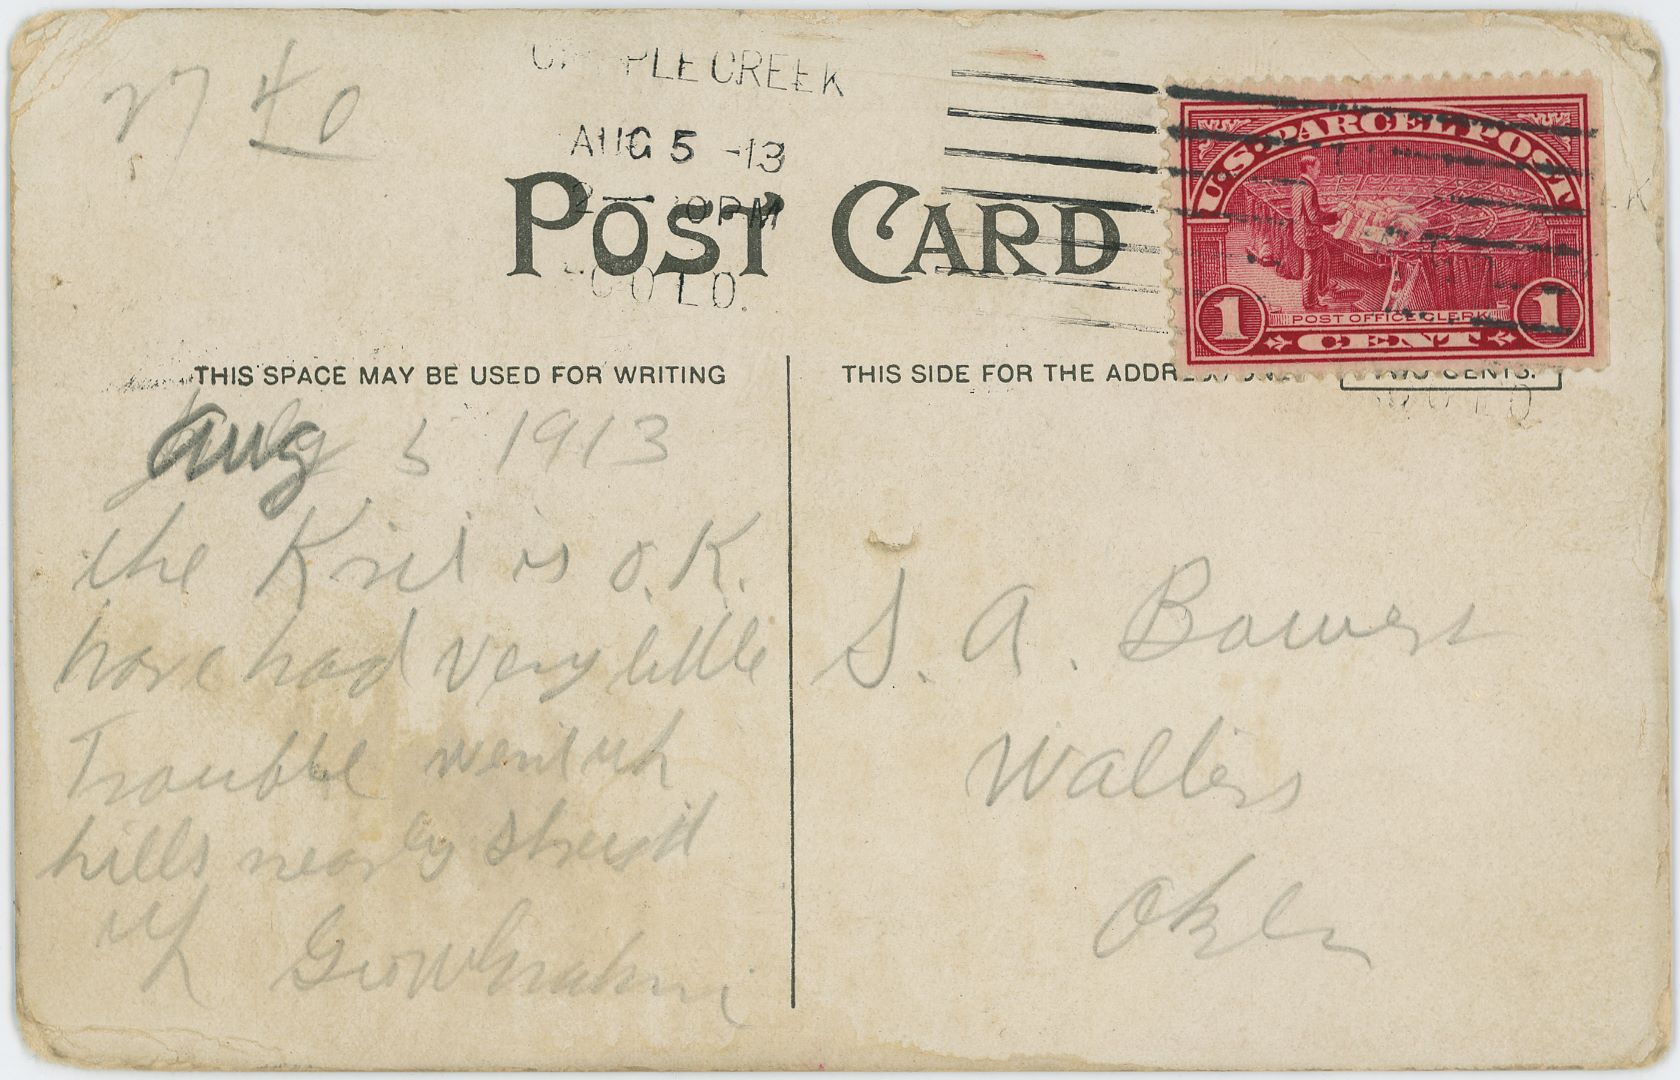 CRIPPLE CREEK
AUG 5 -13
2— 10 PM
COLO.
POST CARD
U.S. PARCEL POST
POST OFFICE CLERK
1 CENT 1
THIS SPACE MAY BE USED FOR WRITING
THIS SIDE FOR THE ADDRESS
TWO CENTS.
Aug 5 1913
the Krit is O.K.
have had very little
Trouble went up
hills nearly streight
up Geo W Graham
S. A. Bowers
Walters
Okla